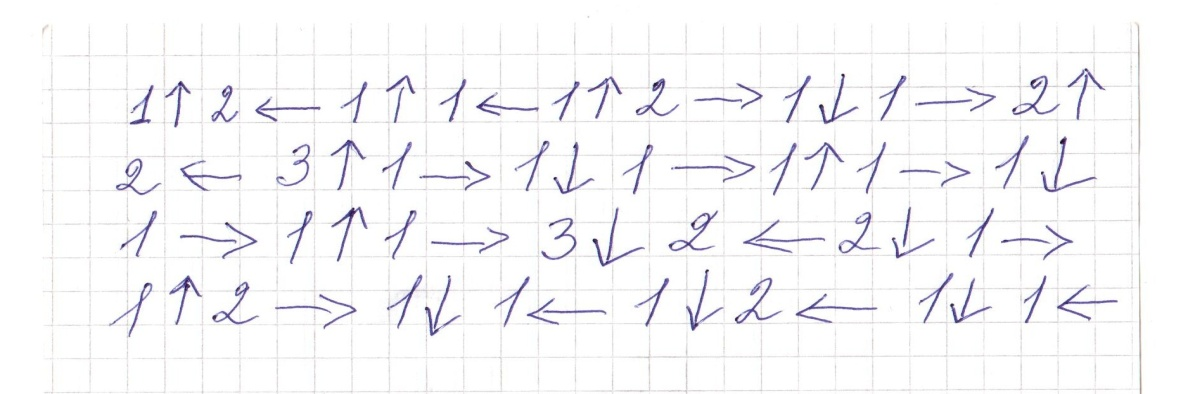 1↑2←1↑1←1↑2→1↓1→2↑
2←3↑1→1↓1→1↑1→1↓
1→1↑1→3↓2←2↓1→
1↑2→1↓1←1↓2←1↓1←